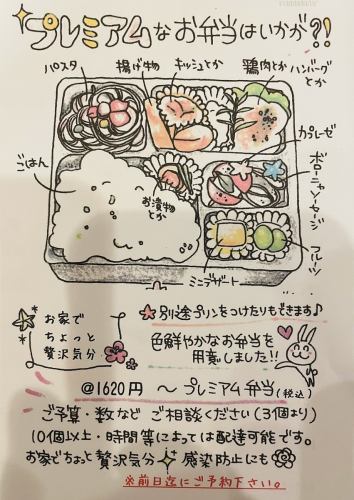 プレミアムなお弁当はいかが?!
パスタ
揚げ物とか
キッシュとか
鶏肉とか
ハンバーグとか
カプレーゼ
ごはん
お漬物とか
ボローニャソーセージ
フルーツ
ミニデザート
別途プリンをつけたりもできます♪
お家で
ちょっと
贅沢気分
色鮮やかなお弁当を
用意しました!!
@1620円 〜プレミアム弁当(税込)
ご予算・数など ご相談ください(3個より)
10個以上・時間等によっては配達可能です。
お家でちょっと贅沢気分 感染防止にも
※前日迄にご予約下さい。